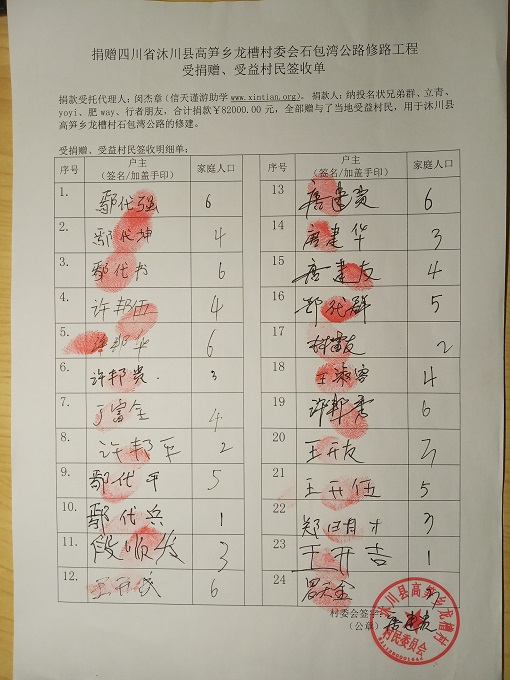 捐赠四川省沐川县高笋乡龙槽村委会石包湾公路修路工程
受捐赠、受益村民签收单
捐款受托代理人：闵杰章（信天谨游助学 www.xintian.org）。 捐款人：纳投名状兄弟群、立青、
yoyi、肥way、行者朋友，合计捐款￥82000.00 元，全部赠与了当地受益村民，用于沐川县
高笋乡龙槽村石包湾公路的修建。
受捐赠、受益村民签收明细单：
序号 户主 （签名/加盖手印） 家庭人口 序号 户主 （签名/加盖手印） 家庭人口
1. 鄢代强 6 13 唐建贵 6
2. 鄢代坤 4 14 唐建华 3
3. 鄢代书 6 15 唐建友 4
4. 许邦伍 4 16 鄢代群 5
5. 许邦华 6 17 2
6. 许邦贵 3 18 王淑容 4
7. 丁富全 4 19 许邦秀 6
8. 许邦平 2 20 王开友 3
9. 鄢代平 5 21 王开伍 5
10. 鄢代兵 1 22 郑明才 3
11. 段顺发 3 23 王开吉 1
12. 王开成 6 24
村委会签字：唐建贵
（公章）
沐川县高笋乡龙槽村
村民委员会